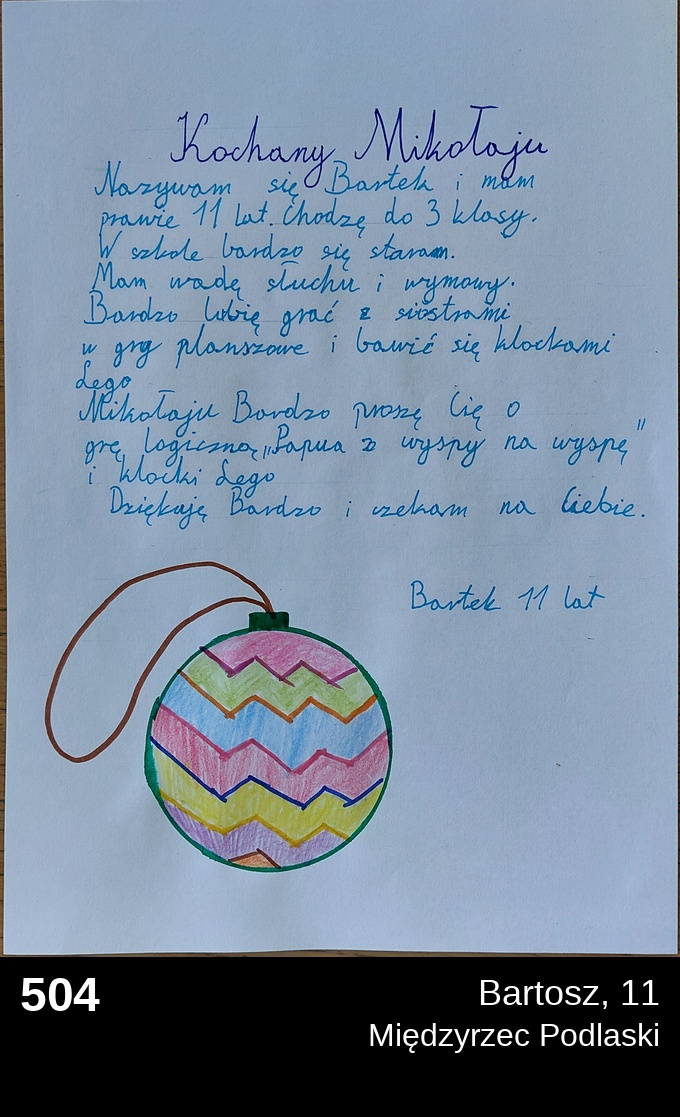 Kochany Mikołaju
Nazywam się Bartek i mam
prawie 11 lat. Chodzę do 3 klasy.
W szkole bardzo się staram.
Mam wadę słuchu i wymowy.
Bardzo lubię grać z siostrami
w gry planszowe i bawić się klockami
Lego
Mikołaju Bardzo proszę Cię o
grę logiczną „Papua z wyspy na wyspę"
i klocki Lego
Dziękuję Bardzo i czekam na Ciebie.
Bartek 11 lat
504
Bartosz, 11
Międzyrzec Podlaski